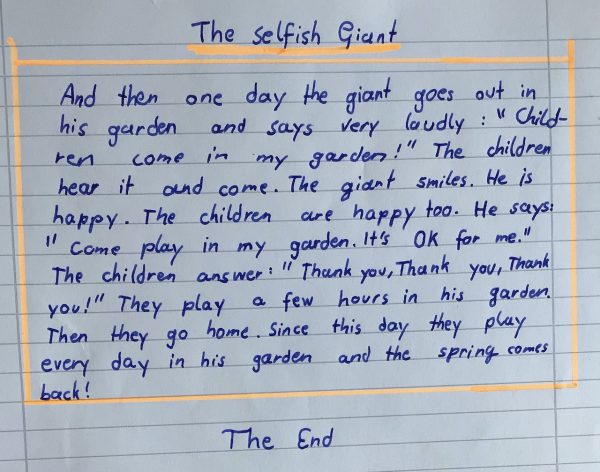 The Selfish Giant
And then one day the giant goes out in
his garden and says very laudly : "Child-
ren come in my garden!" The children
hear it and come. The giant smiles. He is
happy. The children are happy too. He says:
"Come play in my garden. It's OK for me."
The children answer: "Thank you, Thank you, Thank
you!" They play a few hours in his garden.
Then they go home. Since this day they play
every day in his garden and the spring comes
back!
The End